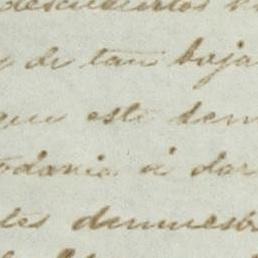 descubiertos
y de tan baja
que este dem
todavia á dar
tes demuestr